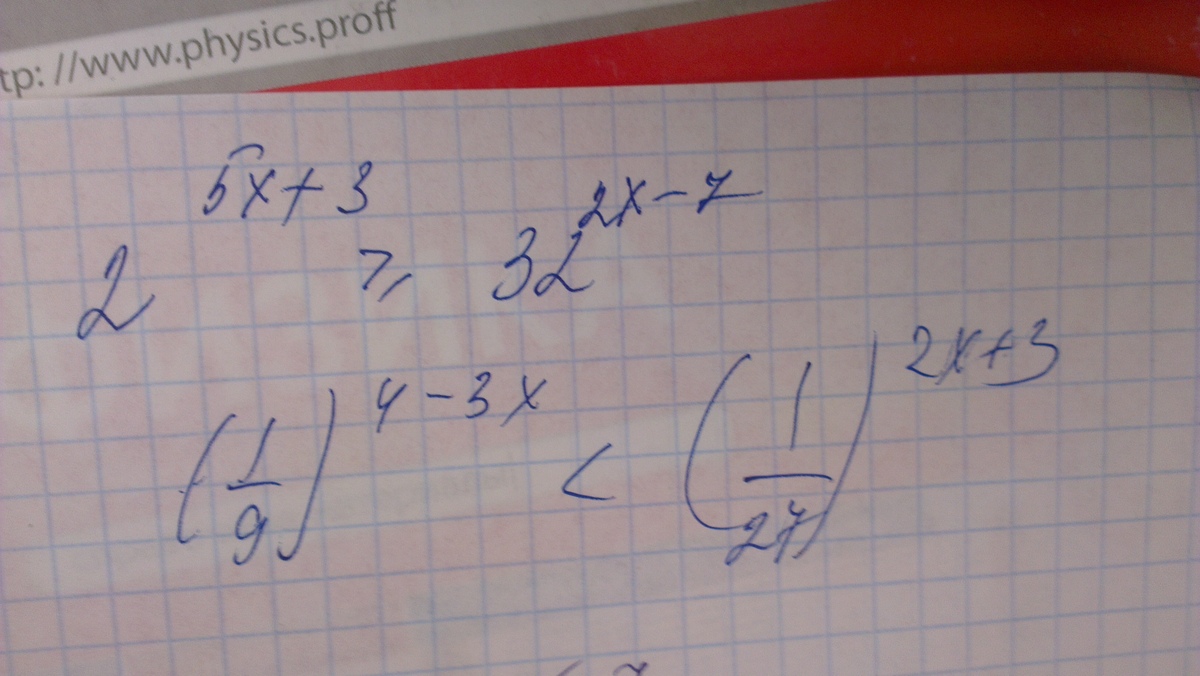 tp: //www.physics.proff
2^(5x+3) ≥ 32^(2x-7)
(1/9)^(4-3x) < (1/27)^(2x+3)